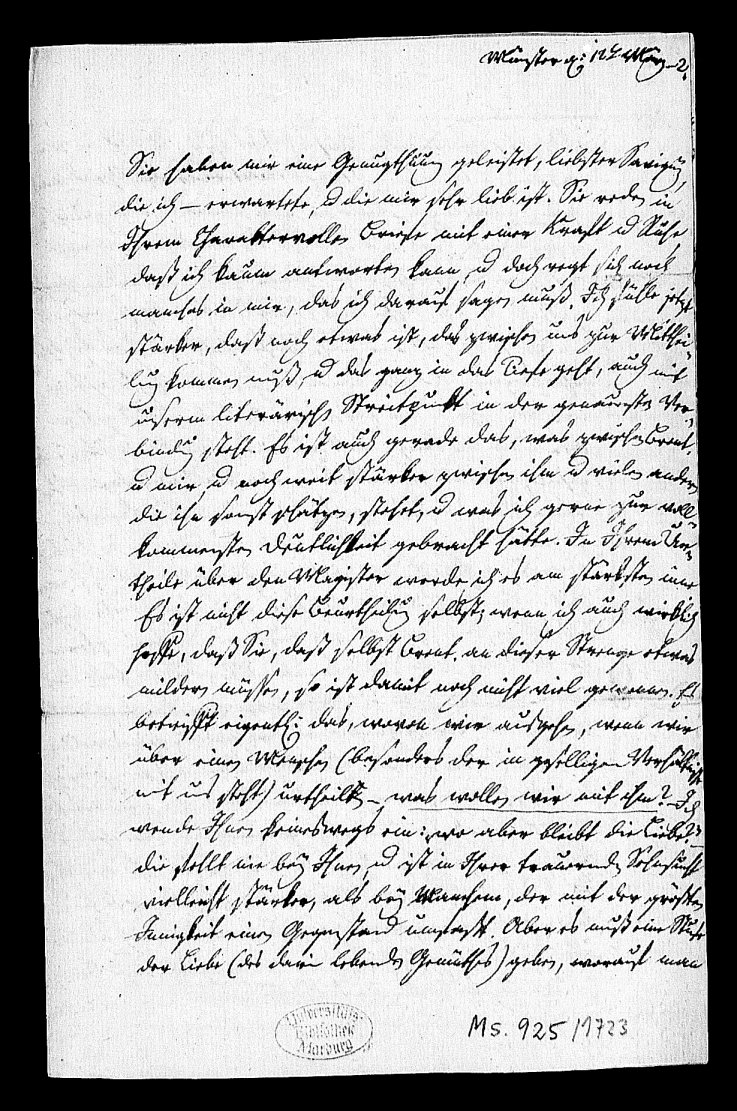 Münster d: 12t März –2.
Sie haben mir eine Genugthuung geleistet, liebster Savigny,
die ich – erwartete, u die mir sehr lieb ist. Sie reden in
Ihrem Charaktervollen Briefe mit einer Kraft u Ruhe
daß ich kaum antworten kann, u doch regt sich noch
manches in mir, das ich darauf sagen muß. Ich fühle jetzt
stärker, daß noch etwas ist, das zwischen uns zur Mitthei
lung kommen muß, u das ganz in das Tiefe geht, auch mit
unserm literärischen Streitpunkt in der genauesten Ver-
bindung steht. Es ist auch gerade das, was zwischen Brent.
u mir, u noch weit stärker zwischen ihm u vielen andern
die ihn sonst schätzen, stehet, u was ich gerne zur voll
kommensten Deutlichkeit gebracht hätte. In Ihrem Ur-
theile über den Magister werde ich es am stärksten inne
Es ist nicht diese Beurtheilung selbst; wenn ich auch wirklich
hoffe, daß Sie, daß selbst Brent. an dieser Strenge etwas
mildern müssen, so ist damit noch nicht viel gewonnen. Es
betrifft eigentl: das, wovon wir ausgehen, wenn wir
über einen Menschen (besonders der in geselligen Verhältniß
mit uns steht) urtheilen – was wollen wir mit ihm? – Ich
wende Ihnen keineswegs ein: „wo aber bleibt die Liebe?"
die fehlt nie bey Ihnen, u ist in Ihrer trauernden Sehnsucht
vielleicht stärker, als bey Manchem, der mit der größten
Innigkeit einen Gegenstand umfaßt. Aber es muß eine Stufe
der Liebe (des darin lebenden Gemüthes) geben, worauf man
Universitäts
Bibliothek
Marburg
Ms. 925/1723